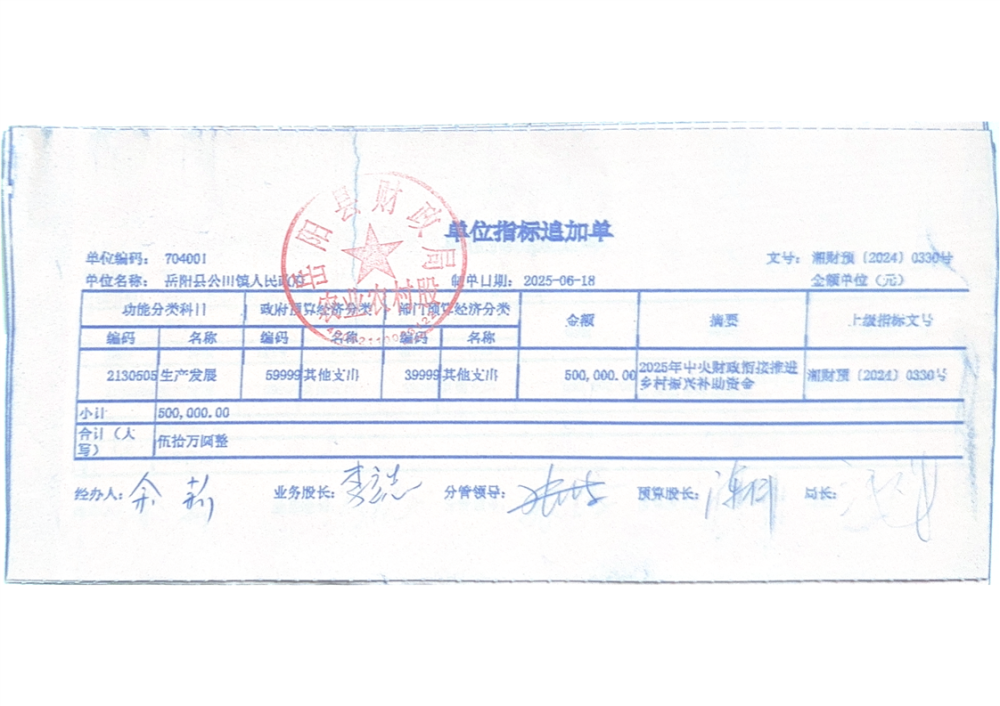 单位指标追加单
单位编码： 704001 文号： 湘财预〔2024〕0330号
单位名称： 岳阳县公田镇人民政府 制单日期： 2025-06-18 金额单位（元）
功能分类科目 政府预算经济分类 部门预算经济分类 金额 摘要 上级指标文号
编码 名称 编码 名称 编码 名称
2130505 生产发展 59999 其他支出 39999 其他支出 500,000.00 2025年中央财政衔接推进乡村振兴补助资金 湘财预〔2024〕0330号
小计 500,000.00
合计（大写） 伍拾万圆整
经办人： 余 业务股长： 李 分管领导： 预算股长： 局长：
岳阳县财政局
农业农村股